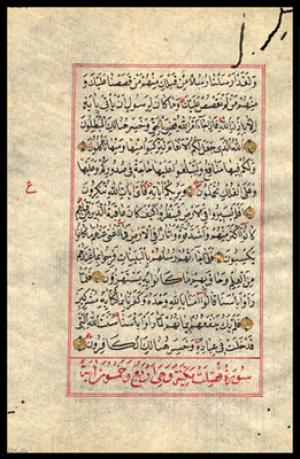 ولقد ارسلنا رسلا من قبلك منهم من قصصنا عليك و
منهم من لم نقصص عليك وما كان لرسول ان ياتي باية
الا باذن الله فاذا جاء امر الله قضي بالحق وخسر هنالك المبطلون
الله الذي جعل لكم الانعام لتركبوا منها ومنها تاكلون
ولكم فيها منافع ولتبلغوا عليها حاجة في صدوركم وعليها
وعلى الفلك تحملون ويريكم اياته فاي ايات الله تنكرون
ع
افلم يسيروا في الارض فينظروا كيف كان عاقبة الذين من قبلهم
كانوا اكثر منهم واشد قوة واثارا في الارض فما اغنى عنهم ما كانوا
يكسبون فلما جاءتهم رسلهم بالبينات فرحوا بما عندهم
من العلم وحاق بهم ما كانوا به يستهزؤن فلما
راوا باسنا قالوا امنا بالله وحده وكفرنا بما كنا به مشركين
فلم يك ينفعهم ايمانهم لما راوا باسنا سنت الله التي
قد خلت في عباده وخسر هنالك الكافرون
سورة فصلت مكية وهي اربع وخمسون اية